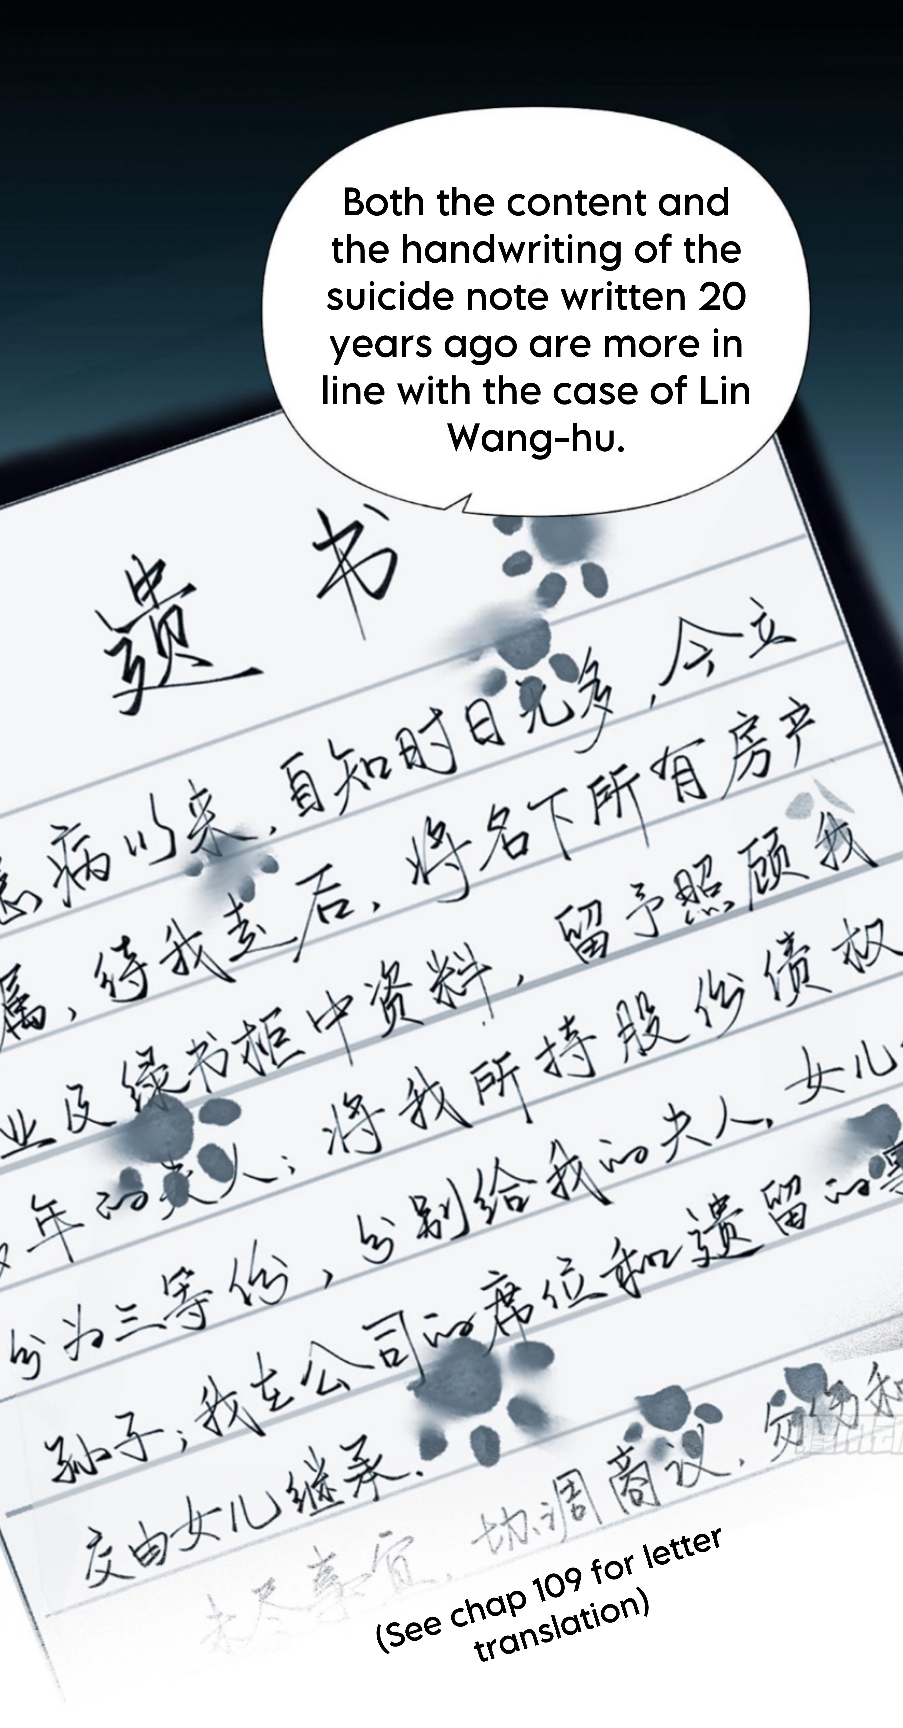 Both the content and
the handwriting of the
suicide note written 20
years ago are more in
line with the case of Lin
Wang-hu.
遗书
病以来，自知时日无多，今立
属，待我去后，将名下所有房产
业及绿书柜中资料，留予照顾我
年的夫人；将我所持股份债权
分为三等份，分别给我的夫人、女儿
孙子；我在公司的席位和遗留的事
交由女儿继承。
未尽事宜，协调商议，勿伤和
(See chap 109 for letter
translation)